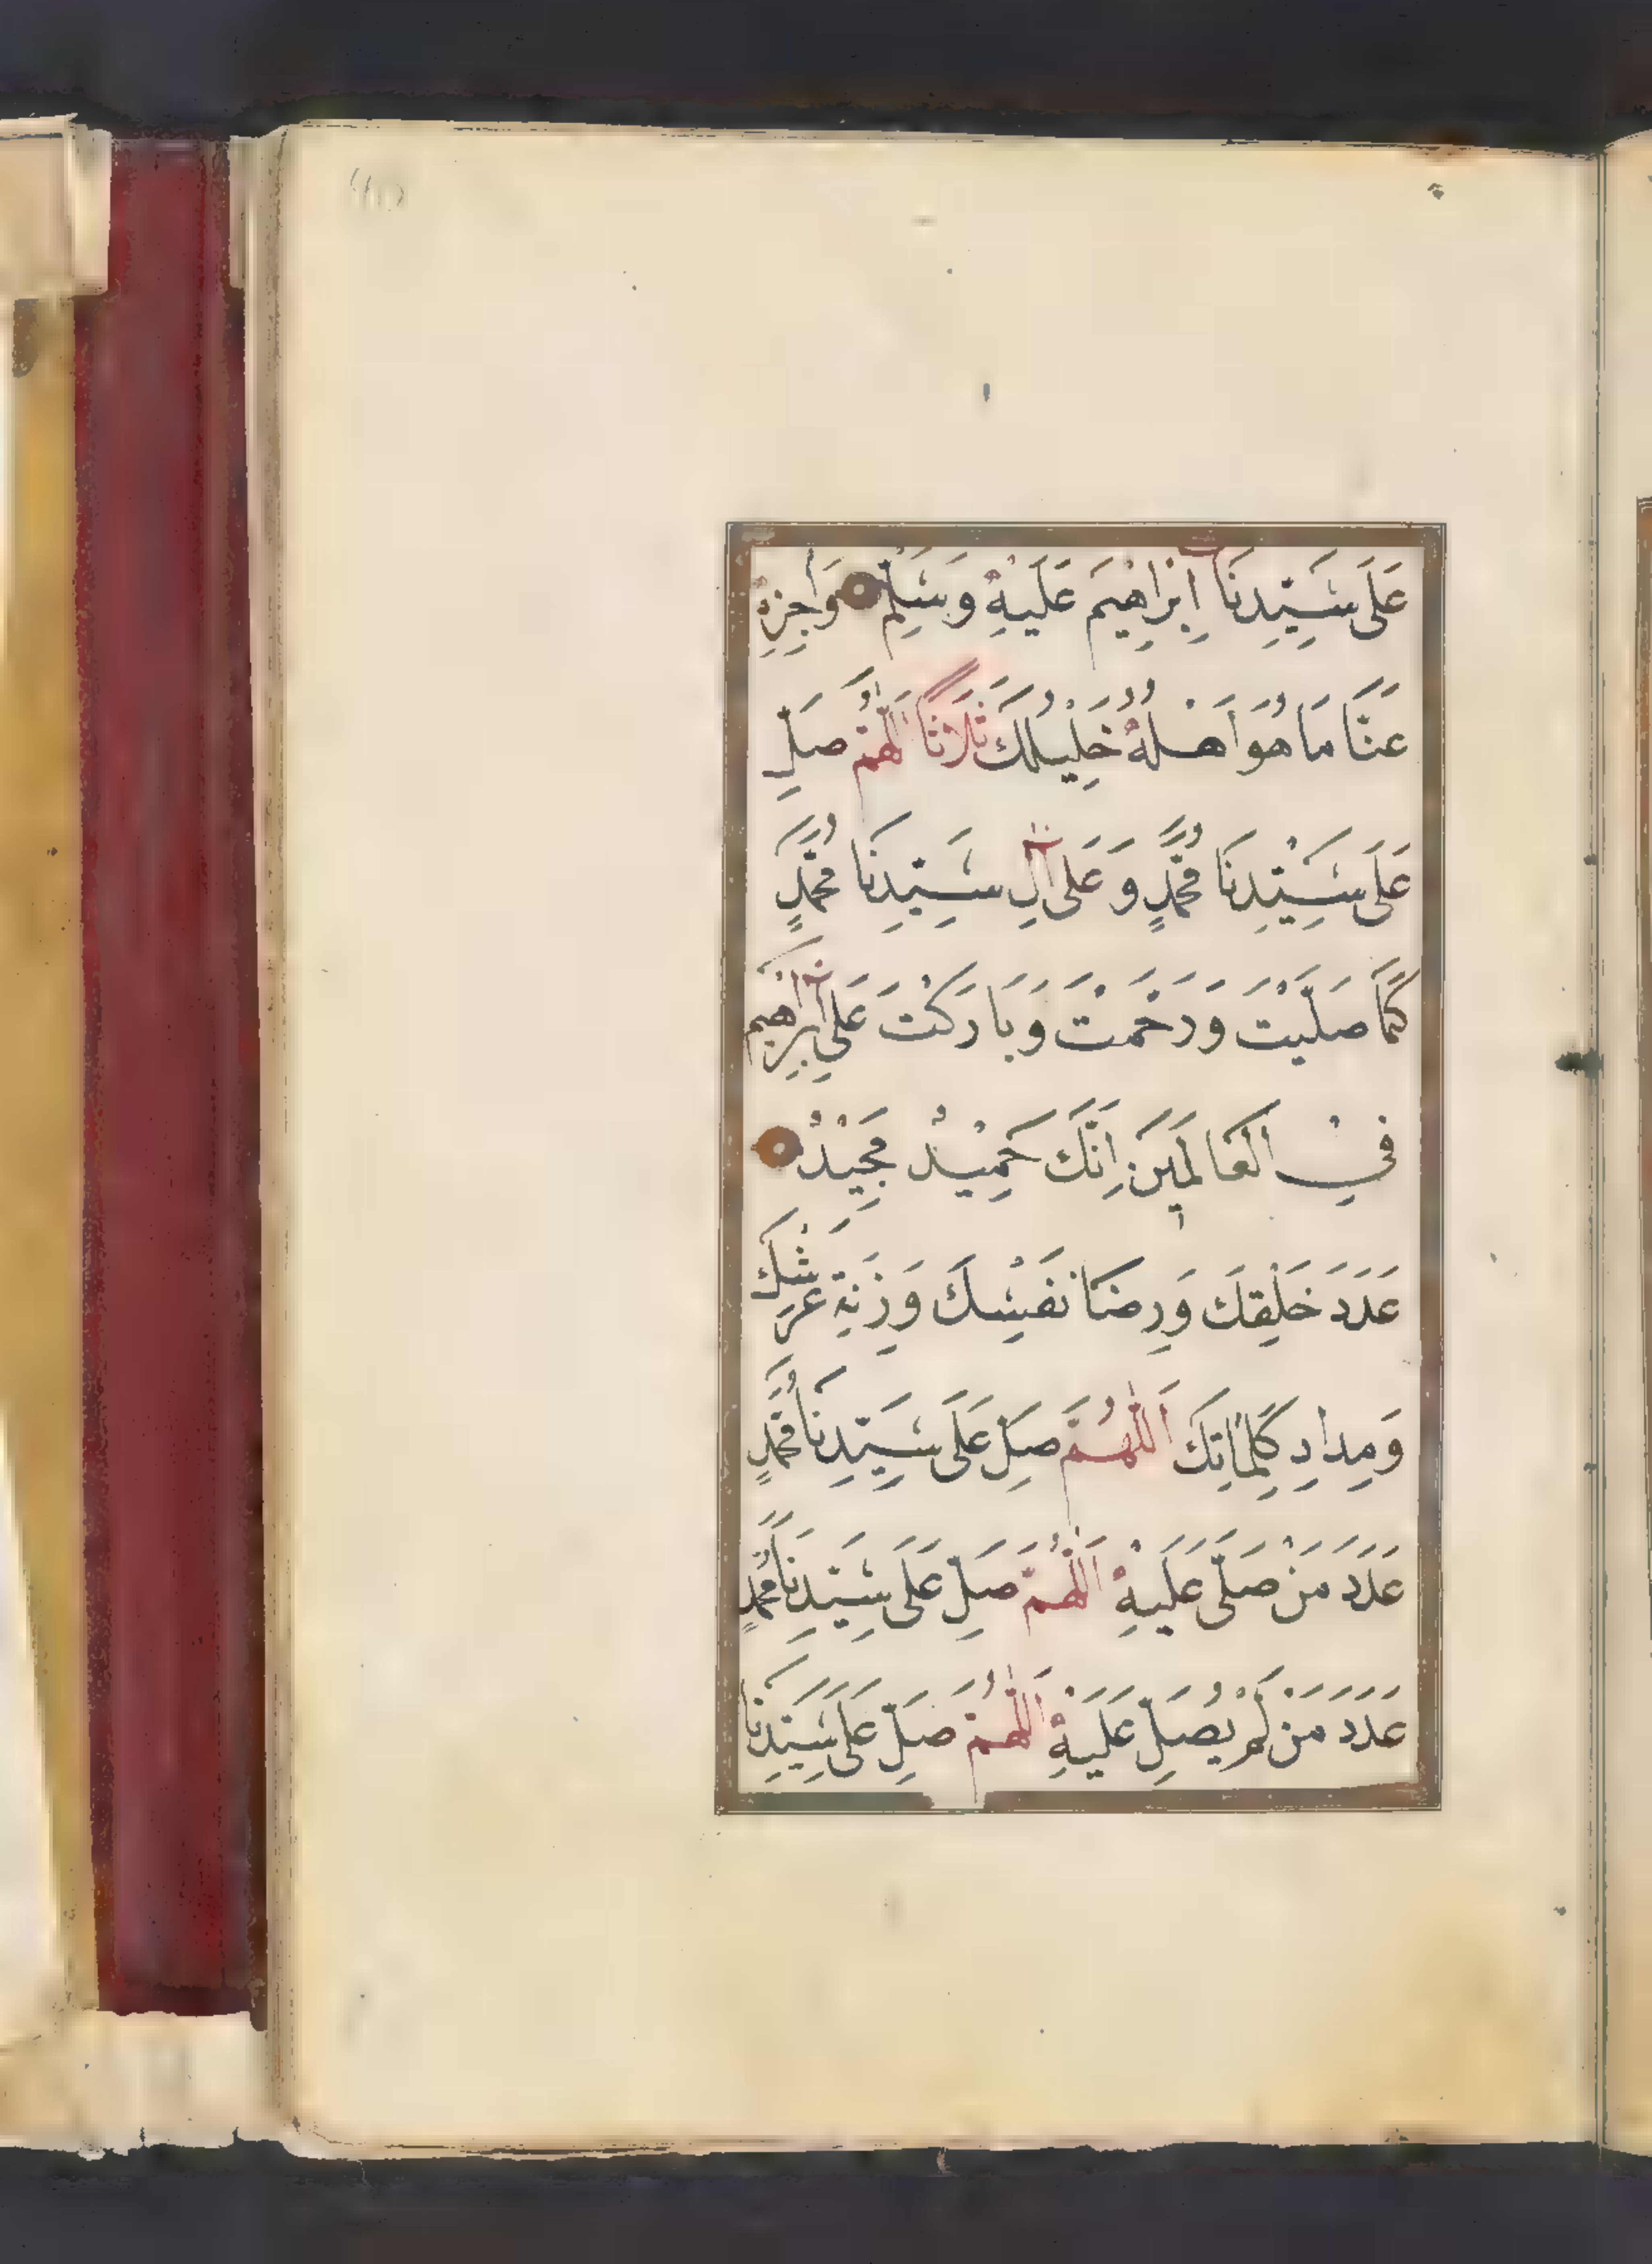 عَلَى سَيِّدِنَا اِبْرَاهِيْمَ عَلَيْهِ وَسَلِّمْ وَاجْزِهِ
عَنَّا مَا هُوَ اَهْلُهُ خَلِيْلُكَ ثَلَاثًا اَللّٰهُمَّ صَلِّ
عَلَى سَيِّدِنَا مُحَمَّدٍ وَعَلَى آلِ سَيِّدِنَا مُحَمَّدٍ
كَمَا صَلَّيْتَ وَرَحِمْتَ وَبَارَكْتَ عَلَى اِبْرَاهِيْمَ
فِيْ الْعَالَمِيْنَ اِنَّكَ حَمِيْدٌ مَجِيْدٌ
عَدَدَ خَلْقِكَ وَرِضَا نَفْسِكَ وَزِنَةِ عَرْشِكَ
وَمِدَادِ كَلِمَاتِكَ اَللّٰهُمَّ صَلِّ عَلَى سَيِّدِنَا مُحَمَّدٍ
عَدَدَ مَنْ صَلَّى عَلَيْهِ اَللّٰهُمَّ صَلِّ عَلَى سَيِّدِنَا مُحَمَّدٍ
عَدَدَ مَنْ لَمْ يُصَلِّ عَلَيْهِ اَللّٰهُمَّ صَلِّ عَلَى سَيِّدِنَا